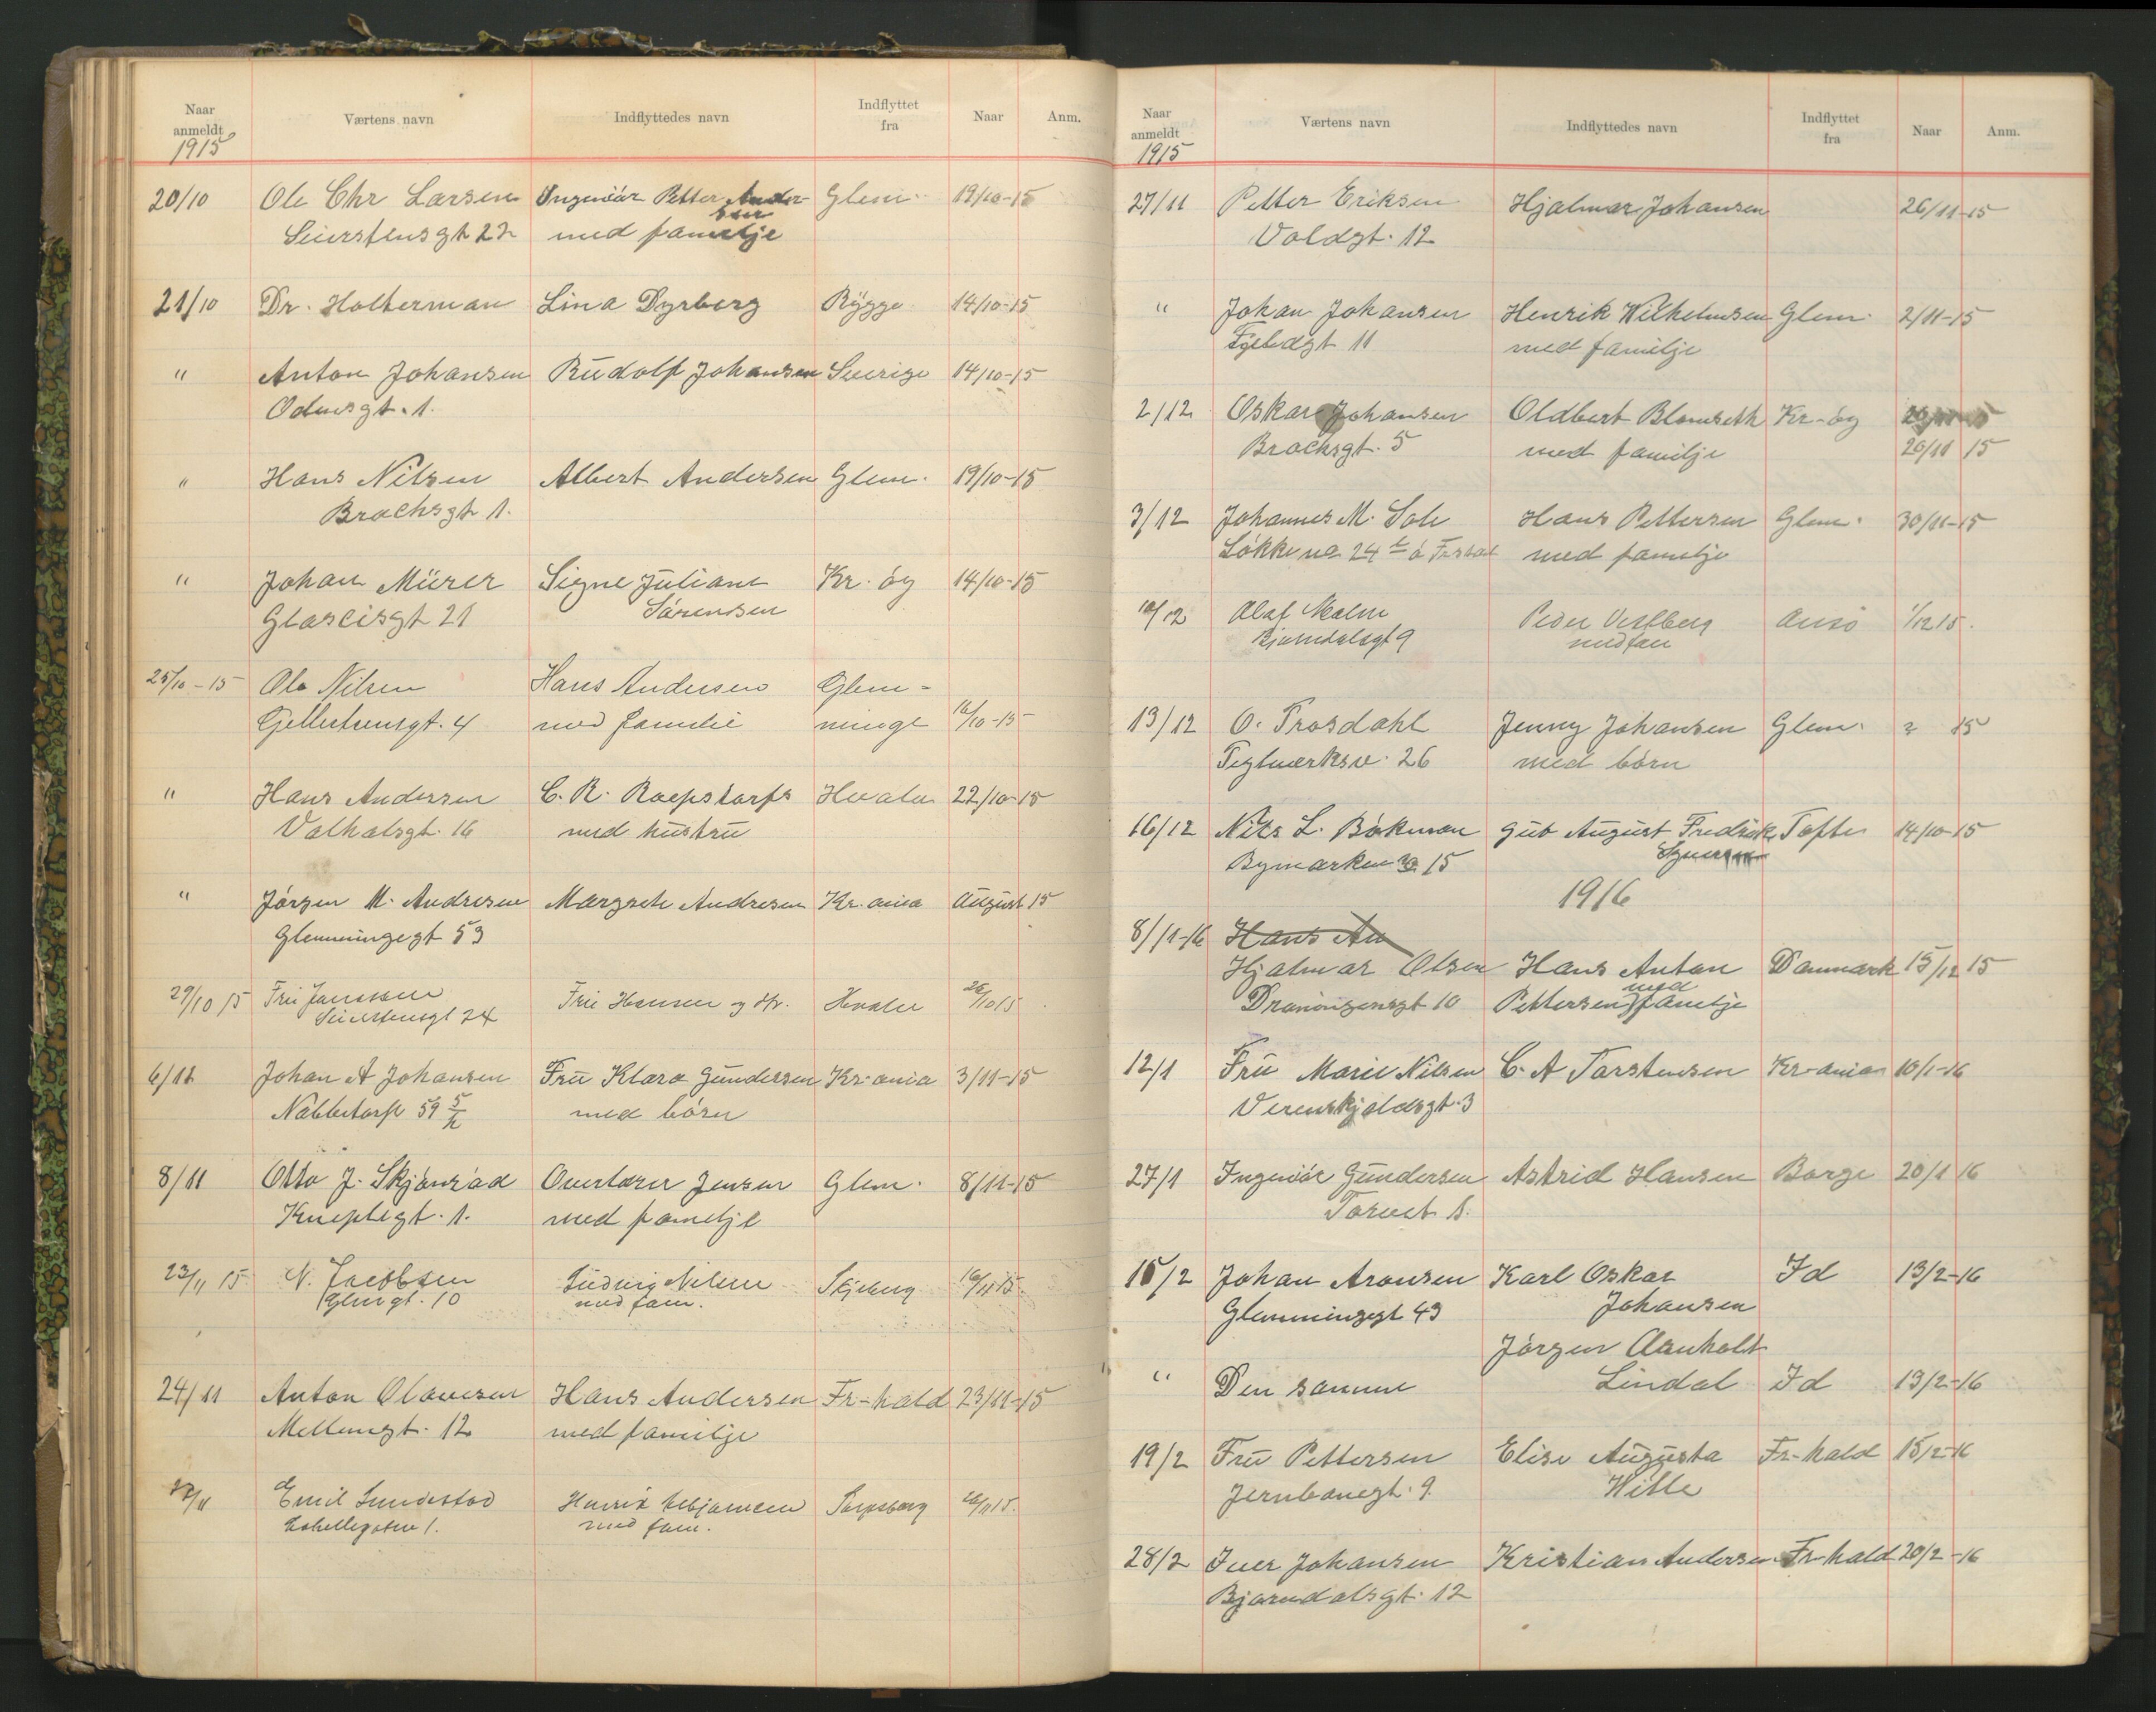 Naar anmeldt 1915 Værtens navn Indflyttedes navn Indflyttet fra Naar Anm.
20/10 Ole Chr Larsen Ingeniør Petter Ander- Glem. 19/10-15
Seierstensgt 22 sen med familje
21/10 Dr. Holterman Lina Dyrberg Rygge 14/10-15
" Anton Johansen Rudolf Johansen Sverige 14/10-15
Odinsgt. 1.
" Hans Nilsen Albert Andersen Glem. 19/10-15
Brochsgt 1.
" Johan Mürer Signe Juliane Kr. øy 14/10-15
Glascisgt 21 Sørensen
25/10-15 Ole Nilsen Hans Andersen Glem-
Gellertsensgt. 4 med familie minge 16/10-15
" Hans Andersen C. R. Roepstorfs Hvaler 22/10-15
Valhalsgt. 16 med hustru
" Jørgen M. Andresen Margrete Andresen Kr.ania August 15
Glemmingegt 53
29/10 15 Fru Janssen Fru Hansen og dtr. Hvaler 26/10 15
Seierstensgt 24
6/11 Johan A Johansen Fru Klara Gundersen Kr-ania 3/11-15
Nabbetorp 59 5/h med børn
8/11 Otto J. Skjønråd Overlærer Jensen Glem. 8/11-15
Kniplegt. 1. med familje
23/11 15 N. Jacobsen Ludvig Nilsen Skjeberg 16/11 15.
Glemgt. 10 med fam.
24/11 Anton Olavesen Hans Andersen Fr-hald 23/11-15
Mellemgt. 12 med familje
Emil Sundstød Henrik Sarpsborg 26/11 15.
1. med fam.
Naar anmeldt 1915 Værtens navn Indflyttedes navn Indflyttet fra Naar Anm.
27/11 Petter Eriksen Hjalmar Johansen 26/11-15
Voldgt. 12
" Johan Johansen Henrik Wilhelmsen Glem. 2/11-15
11 med familje
2/12 Oskar Johansen Oldbert Blomseth Kr-øy
Brochsgt. 5 med familje 20/11 15
3/12 Johannes M. Sole Hans Pettersen Glem. 30/11-15
Løkkene 24 med familje
10/12 Olaf Malm Peder Vestberg Onsø 1/12 15.
Bjørndalsgt 9 med fam
13/12 O. Trosdahl Jenny Johansen Glem. ? 15
Teglverksv. 26 med børn
16/12 Nils L. Bökman Gub August Fredrik Tofte 14/10-15
Bymarken 15
1916
8/1-16 Hans An
Hjalmar Olsen Hans Anton Danmark 15/12 15
Dronningensgt 10 Pettersen med familje
12/1 Fru Marie Nilsen C. A Torstensen Kr-ania 10/1-16
Verenskjoldsgt. 3
27/1 Ingeniør Gundersen Astrid Hansen Borge 20/1 16
Torvet 1.
15/2 Johan Aronsen Karl Oskar Id 13/2-16
Glemmingegt 43 Johansen
Jørgen Aanholt
" Den samme Lindal Id 13/2-16
19/2 Fru Pettersen Elise Augusta Fr-hald 15/2-16
Jernbanegt. 9. Hille
28/2 Iver Johansen Kristian Andersen Fr-hald 20/2-16
Bjørndalsgt. 12